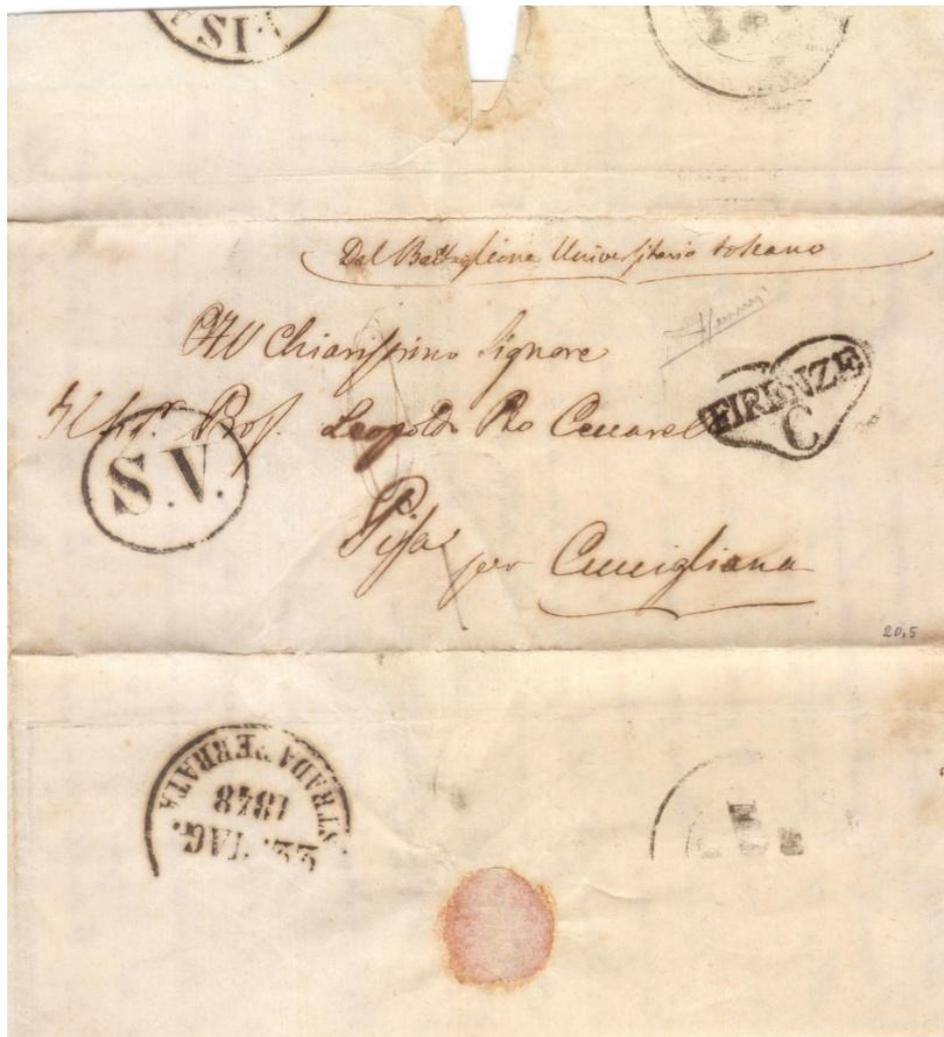 PIS
Dal Battaglione Universitario toscano
All Chiarissimo Signore
Prof. Leopoldo Pio
FIRENZE
C
S.V.
Pisa per Cucigliana
20,5
STRADA FERRATA
1848
22. MAG.